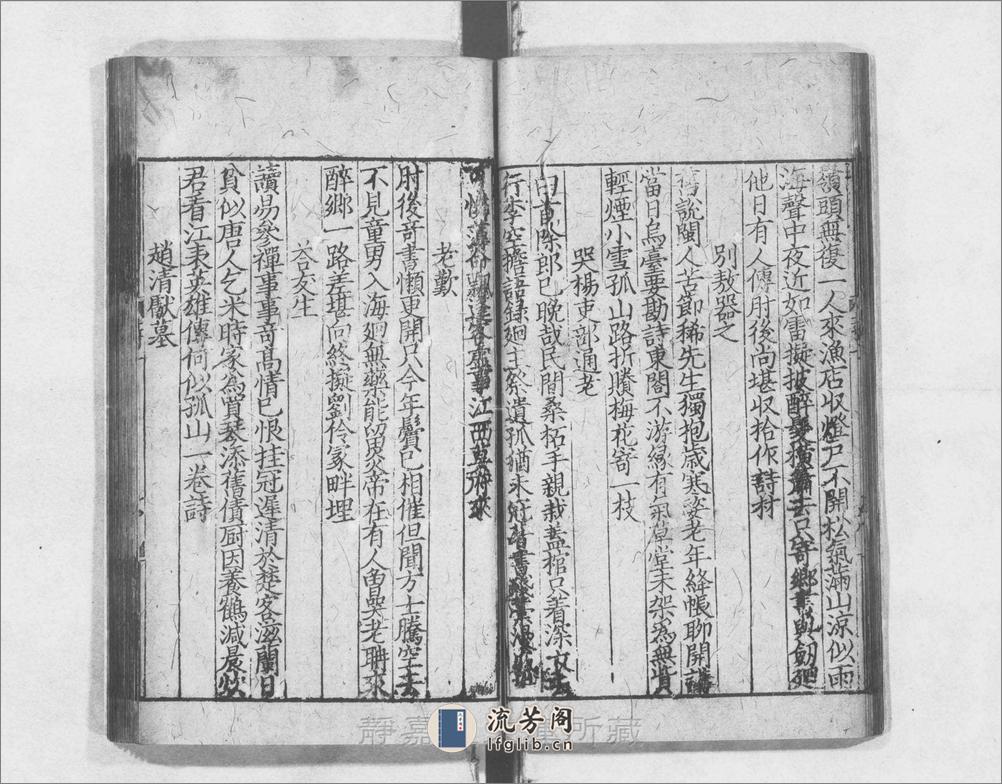 嶺頭無復一人來漁店收燈戸不開松氣滿山涼似雨
海聲中夜近如雷擬披醉髮橫簫去只寄鄉書與劒廻
他日有人傳肘後尚堪収拾作詩材
別敖器之
舊說閩人苦節稀先生獨抱歳寒姿老年絳帳聊開講
當日烏臺要勘詩東閣不游縁有氣草堂未架爲無貲
輕煙小雪孤山路折賸梅花寄一枝
哭楊吏部通老
白首除郎已晚哉民間桑柘手親栽蓋棺只着深衣去
行李空擔語録廻主祭遺孤猶未冠著書殘藁漫
江西草
老歎
肘後奇書懶更開只今年鬢已相催但聞方士騰空去
不見童男入海廻無藥能留炎帝在有人曽哭老聃來
醉鄉一路差堪向終擬劉伶冢畔埋
荅友生
讀易參禪事事奇髙情已恨挂冠遲清於楚客滋蘭日
貧似唐人乞米時家爲買琴添舊債厨因養鶴減晨炊
君看江表英雄傳何似孤山一卷詩
趙清獻墓
静嘉 所藏
流芳阁
lfglib.cn